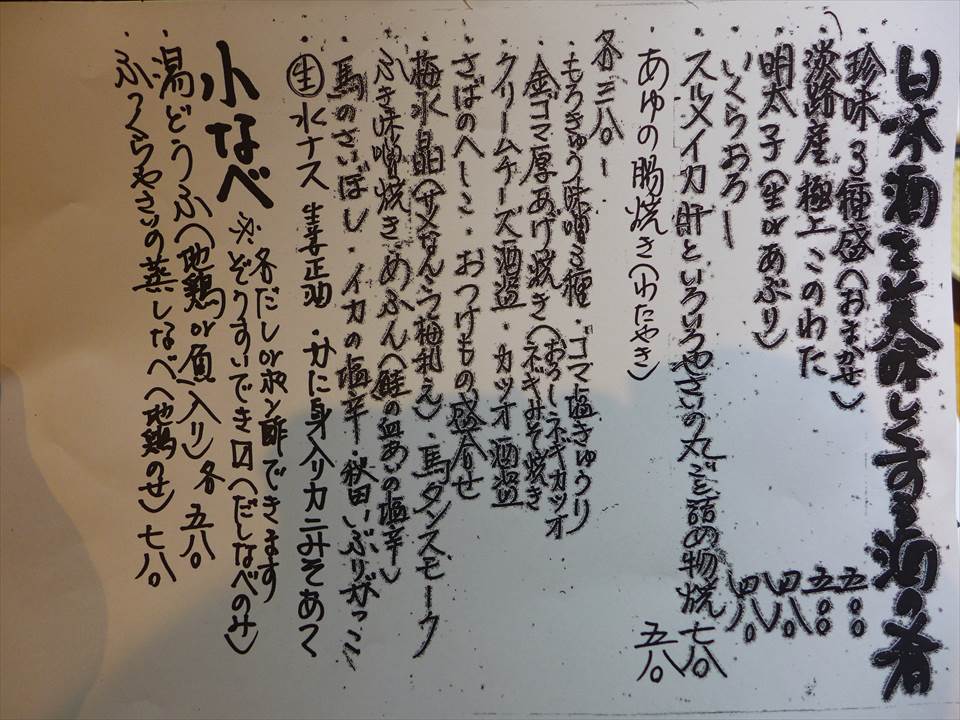 日本酒を美味しくする酒の肴
珍味3種盛(おまかせ) 五八〇
淡路産 極上このわた 五八〇
明太子(生orあぶり) 四八〇
いくらおろし 四八〇
スルメイカ肝といろいろやさいの丸ごと詰め物焼 七八〇
あゆの腸焼き(わたやき) 五八〇
各三八〇ー
・もろきゅう味噌3種・ゴマ塩きゅうり
・金ゴマ厚あげ焼き(おろしネギカツオ ネギみそ焼き
・クリームチーズ酒盗・カツオ酒盗
・さばのへしこ・おつけもの盛合せ
・梅水晶(サメなんこつ梅和え)・馬タンスモーク
・ふき味噌焼き・めふん(鮭の血あいの塩辛)
・馬のさいぼし・イカの塩辛・秋田いぶりがっこ
・生 水ナス 生姜正油・かに身入りカニみそあて
小なべ 各だしorポン酢でできます
※ぞうすいできり(だしなべのみ)
・湯どうふ(地鶏or魚入り) 各 五八〇
・ふっくらやさいの蒸しなべ(地鶏のせ) 七八〇